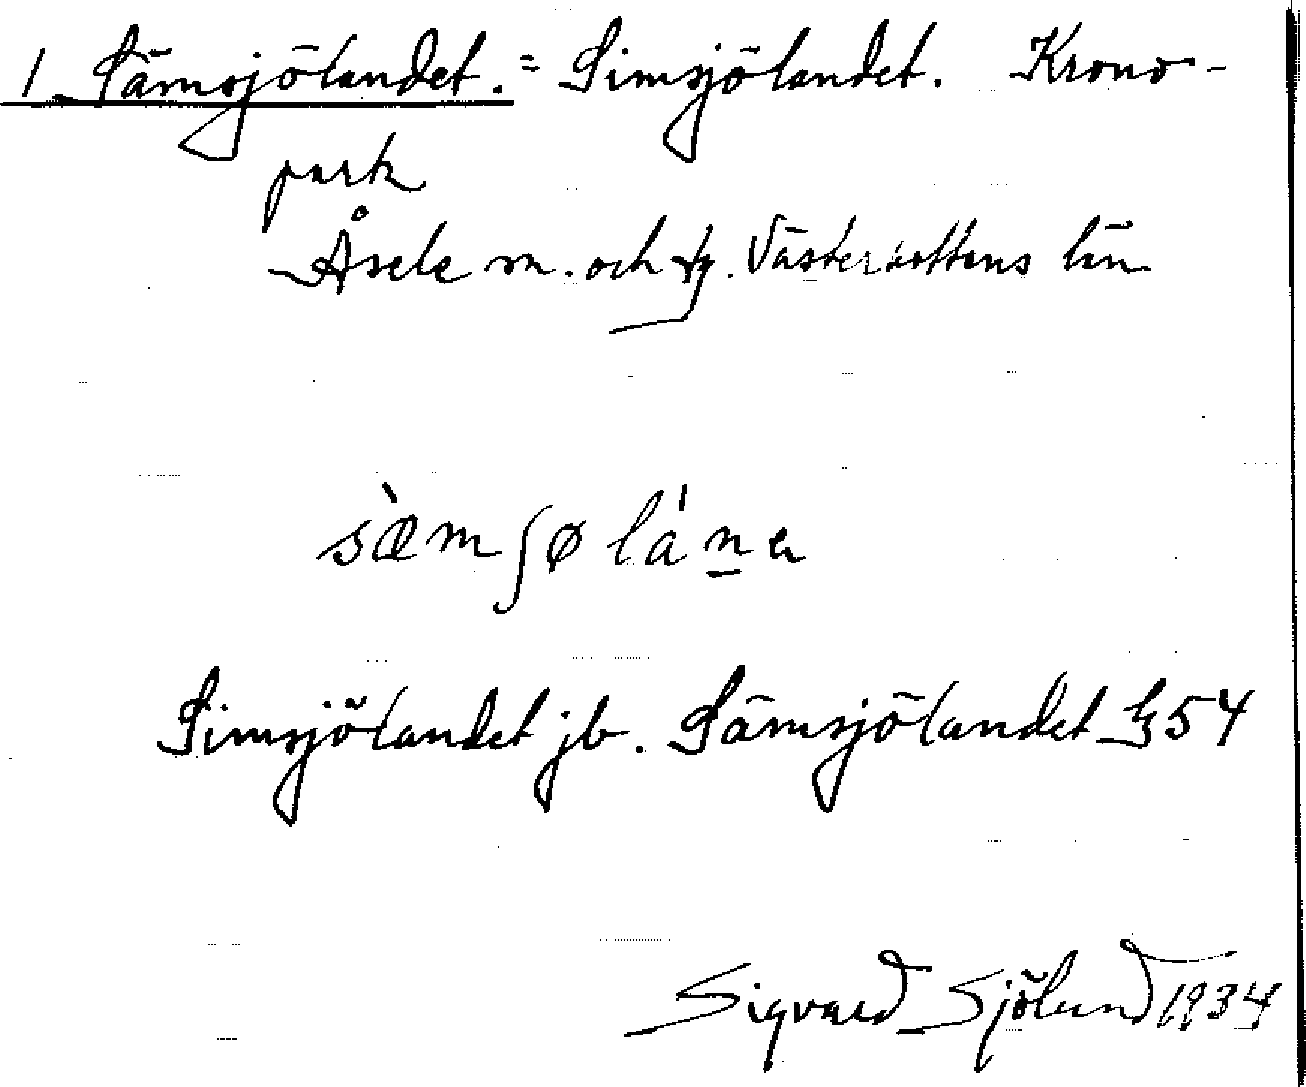 1 Sämsjölandet. = Simsjölandet. Krono-
park
Åsele sn. och tg. Västerbottens län
sæ̀mʃøláṇa
Simsjölandet jb. Sämsjölandet 54
Sigvard Sjölund 1934